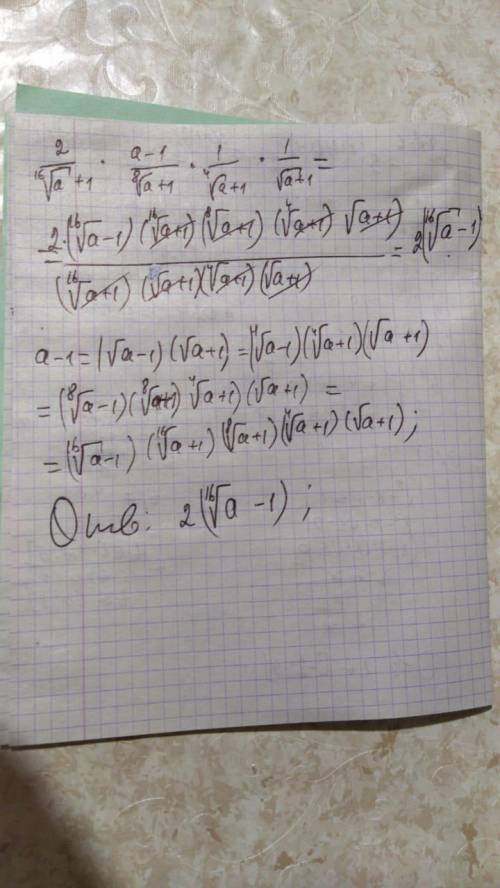 2/(¹⁶√a+1) · (a-1)/(⁸√a+1) · 1/(⁴√a+1) · 1/(√a+1) =
= 2·(¹⁶√a-1)(¹⁶√a+1)(⁸√a+1)(⁴√a+1) √a+1) / (¹⁶√a+1)(⁸√a+1)(⁴√a+1)(√a+1) = 2(¹⁶√a-1)
a-1=(√a-1)(√a+1)=(⁴√a-1)(⁴√a+1)(√a+1)
=(⁸√a-1)(⁸√a+1) ⁴√a+1)(√a+1) =
=(¹⁶√a-1)(¹⁶√a+1)(⁸√a+1)(⁴√a+1)(√a+1);
Отв: 2(¹⁶√a-1);